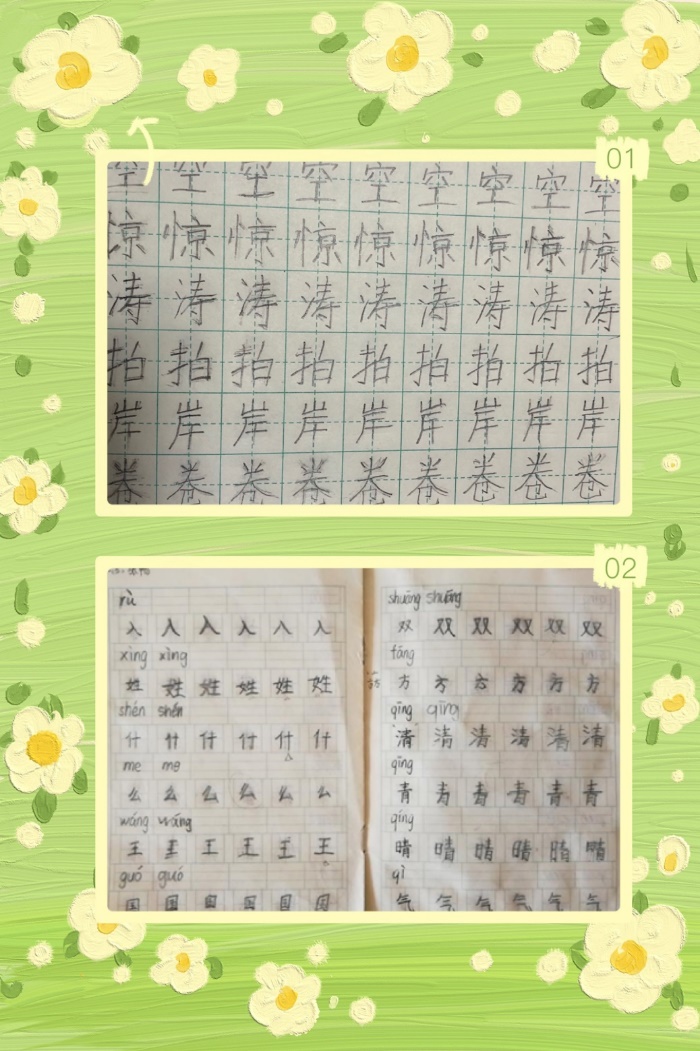 01
空空空空空空空空空
惊惊惊惊惊惊惊惊惊
涛涛涛涛涛涛涛涛涛
拍拍拍拍拍拍拍拍拍
岸岸岸岸岸岸岸岸岸
卷卷卷卷卷卷卷卷卷
02
rù
入入入入入入
xìng xìng
姓姓姓姓姓姓
shén shén
什什什什什什
me me
么么么么么么
wáng wáng
王王王王王王
guó guó
国国国国国国
shuāng shuāng
双双双双双双
fāng
方方方方方方
qīng qīng
清清清清清清
qīng
青青青青青青
qíng
晴晴晴晴晴晴
qì
气气气气气气